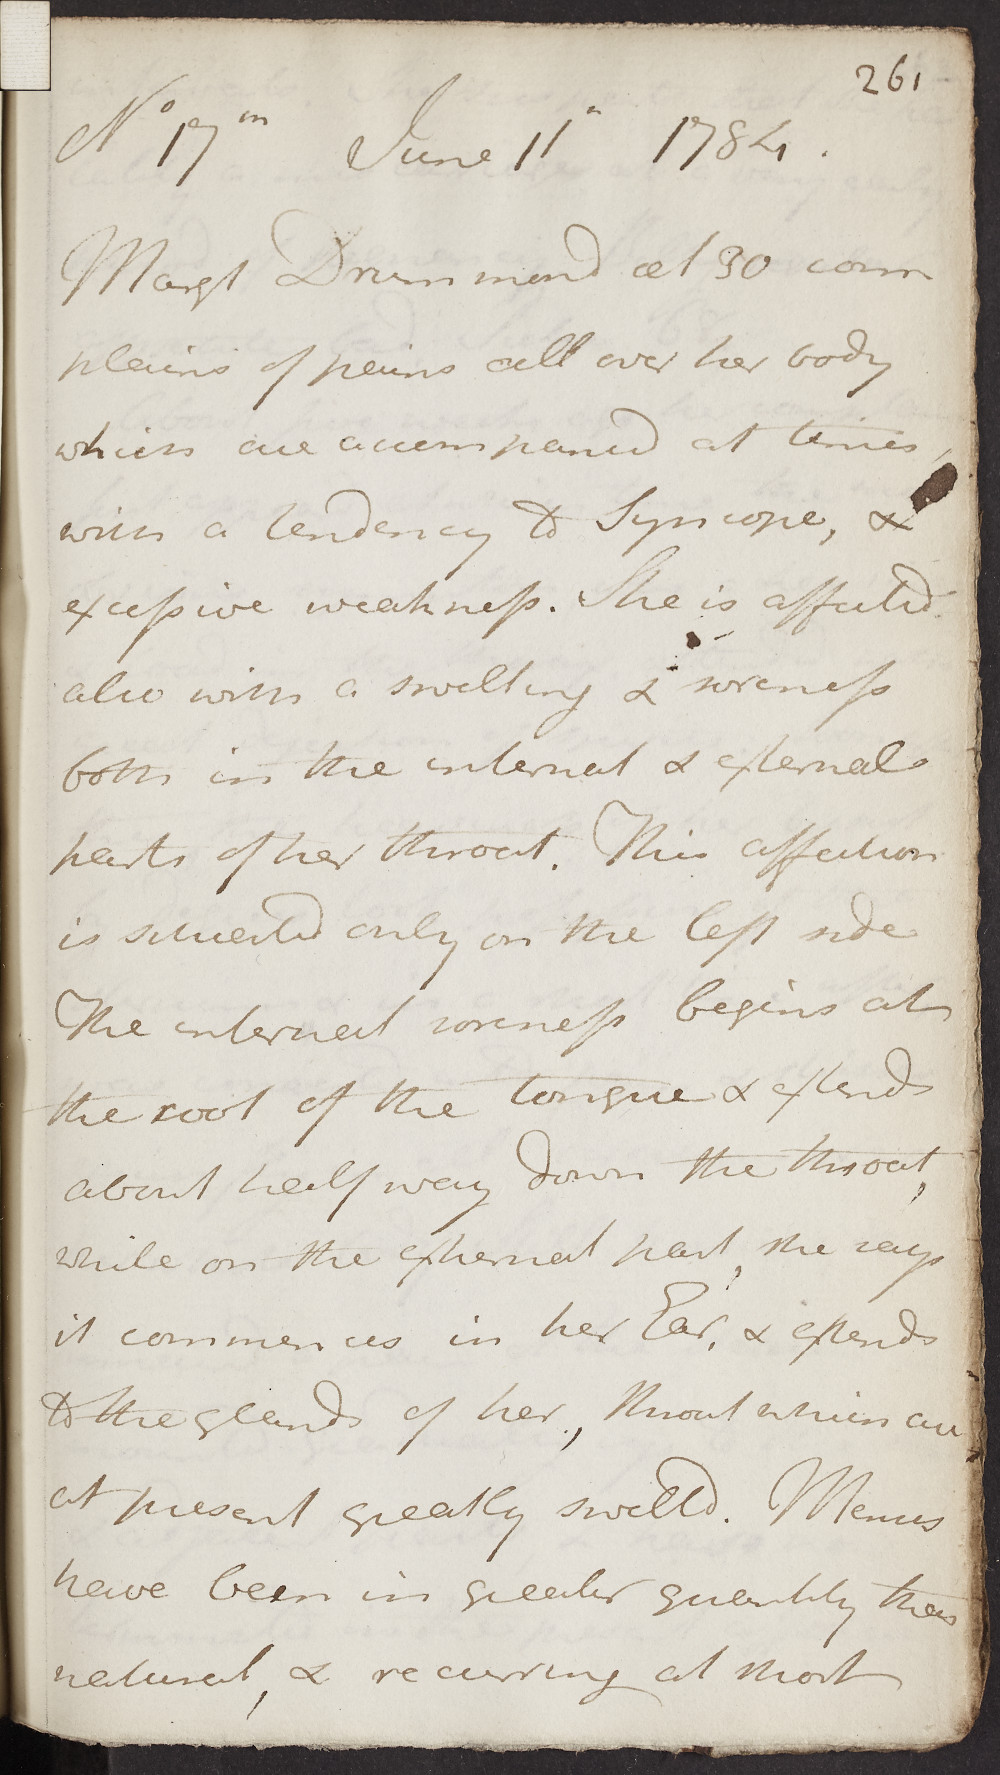 261
No 17m June 11n 1784.
Margt Drummond æt 30 com
plains of pains all over her body
which are accompanied at times,
with a tendency to Syncope, &
excessive weakness. She is affected
also with a swelling & soreness
both in the internal & external
parts of her throat. This affection
is situated only on the left side
The internal soreness begins at
the root of the tongue & extends
about half way down the throat,
while on the external part, she says
it commences in her Ear, & extends
to the glands of her, throat which are
at present greatly swelld. Menses
have been in greater quantity than
natural, & recurring at short